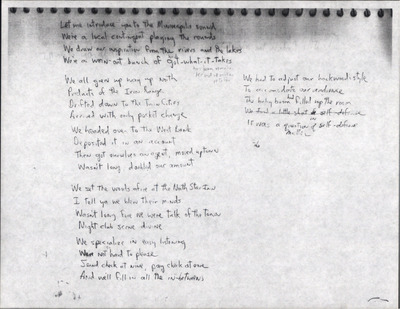 Let me introduce you to the Minneapolis sound
We're a local contingent playing the rounds
We draw our inspiration from the rivers and the lakes
We're a worn-out bunch of got-what-it-takes
We all grew up way up north
Products of the Iron Range
Drifted down to the Twin Cities
Arrived with only pocket change
We headed over to the West Bank
Deposited it in an account
Then got ourselves an agent, moved uptown
Wasn't long doubled our amount
We set the woods afire at the North Star Inn
I tell ya we blew their minds
Wasn't long 'fore we were talk of the town
Night club scene divine
We specialize in easy listening
We're not hard to please
Sound check at nine, pay check at one
And we'll fill in all the in-betweens
We had to adjust our backwoods style
To accommodate our audience
The body had filled up the room
It was a question of self-defense